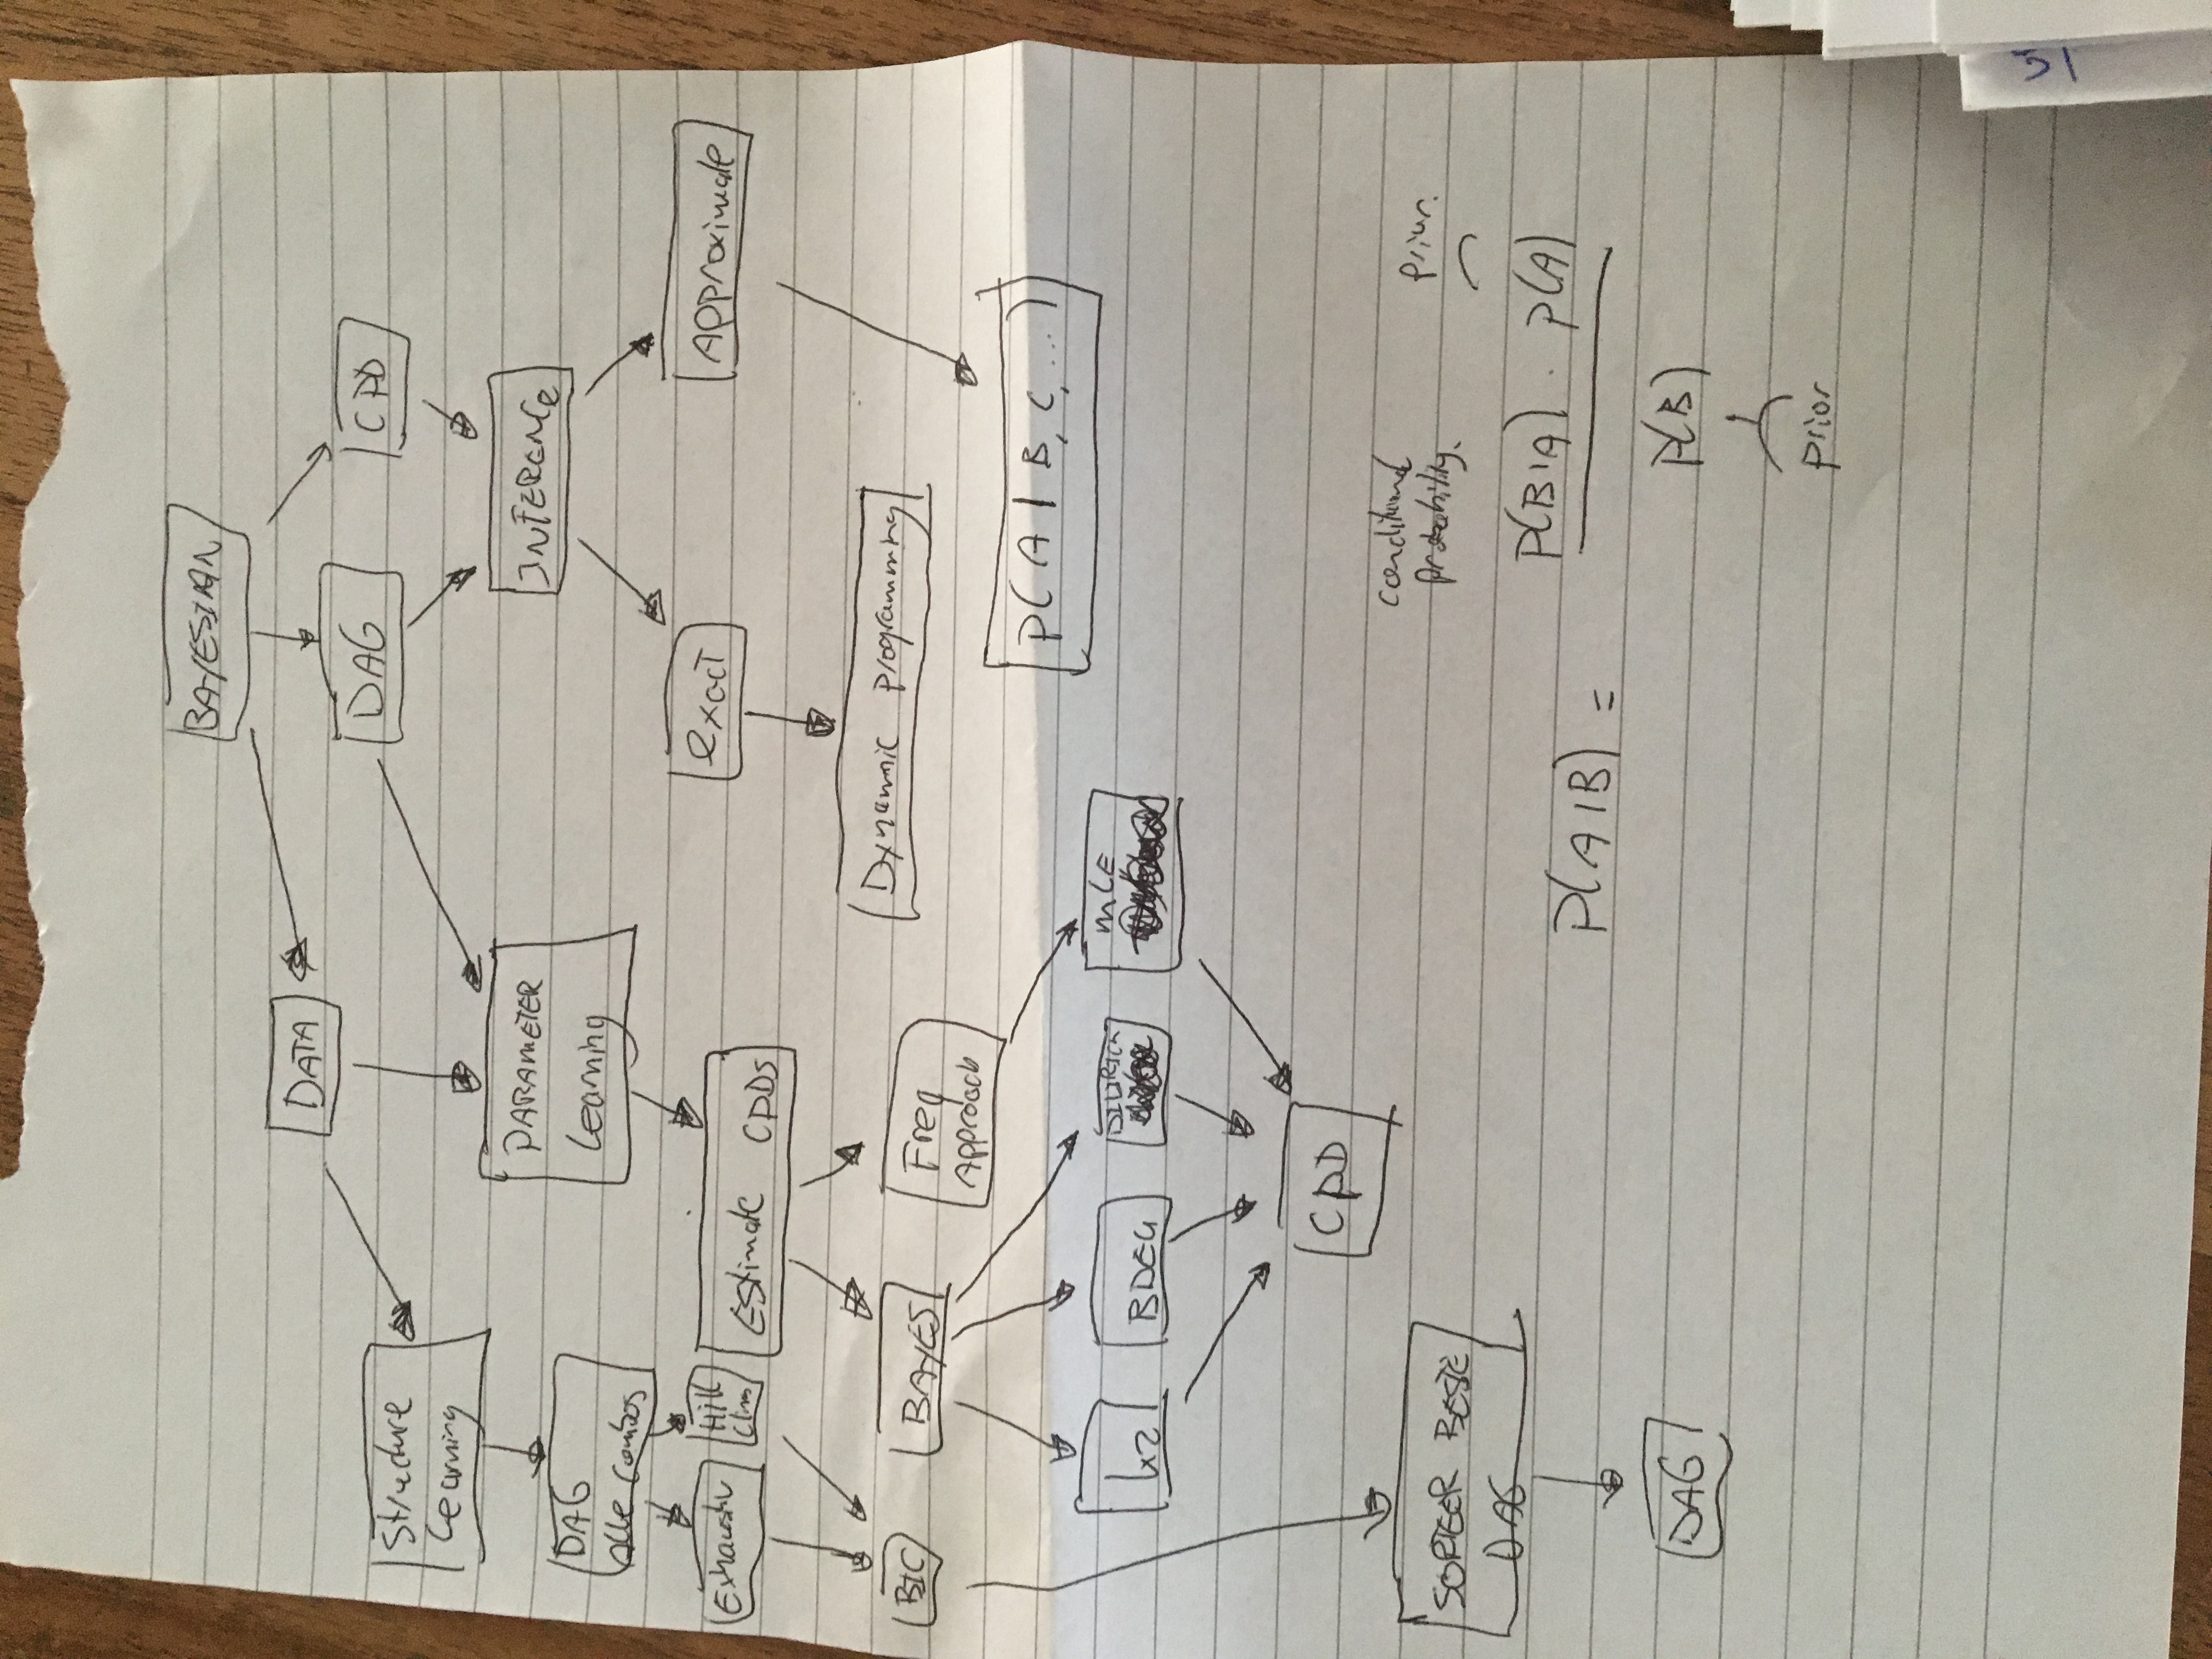 BAYESIAN
DATA
DAG
CPD
Structure
Learning
PARAMETER
Learning
INFERENCE
DAG
Alle combos
Exhaustiv
Hill
Clim
Estimate CPDs
exact
Approximate
BIC
BAYES
Freq
Approach
Dynamic Programming
P(A | B, C, ...)
k2
BDEU
MLE
CPD
SORTEER BESTE
DAG
DAG
conditional
probability.
prior.
P(A|B) =
P(B|A) . P(A)
P(B)
prior